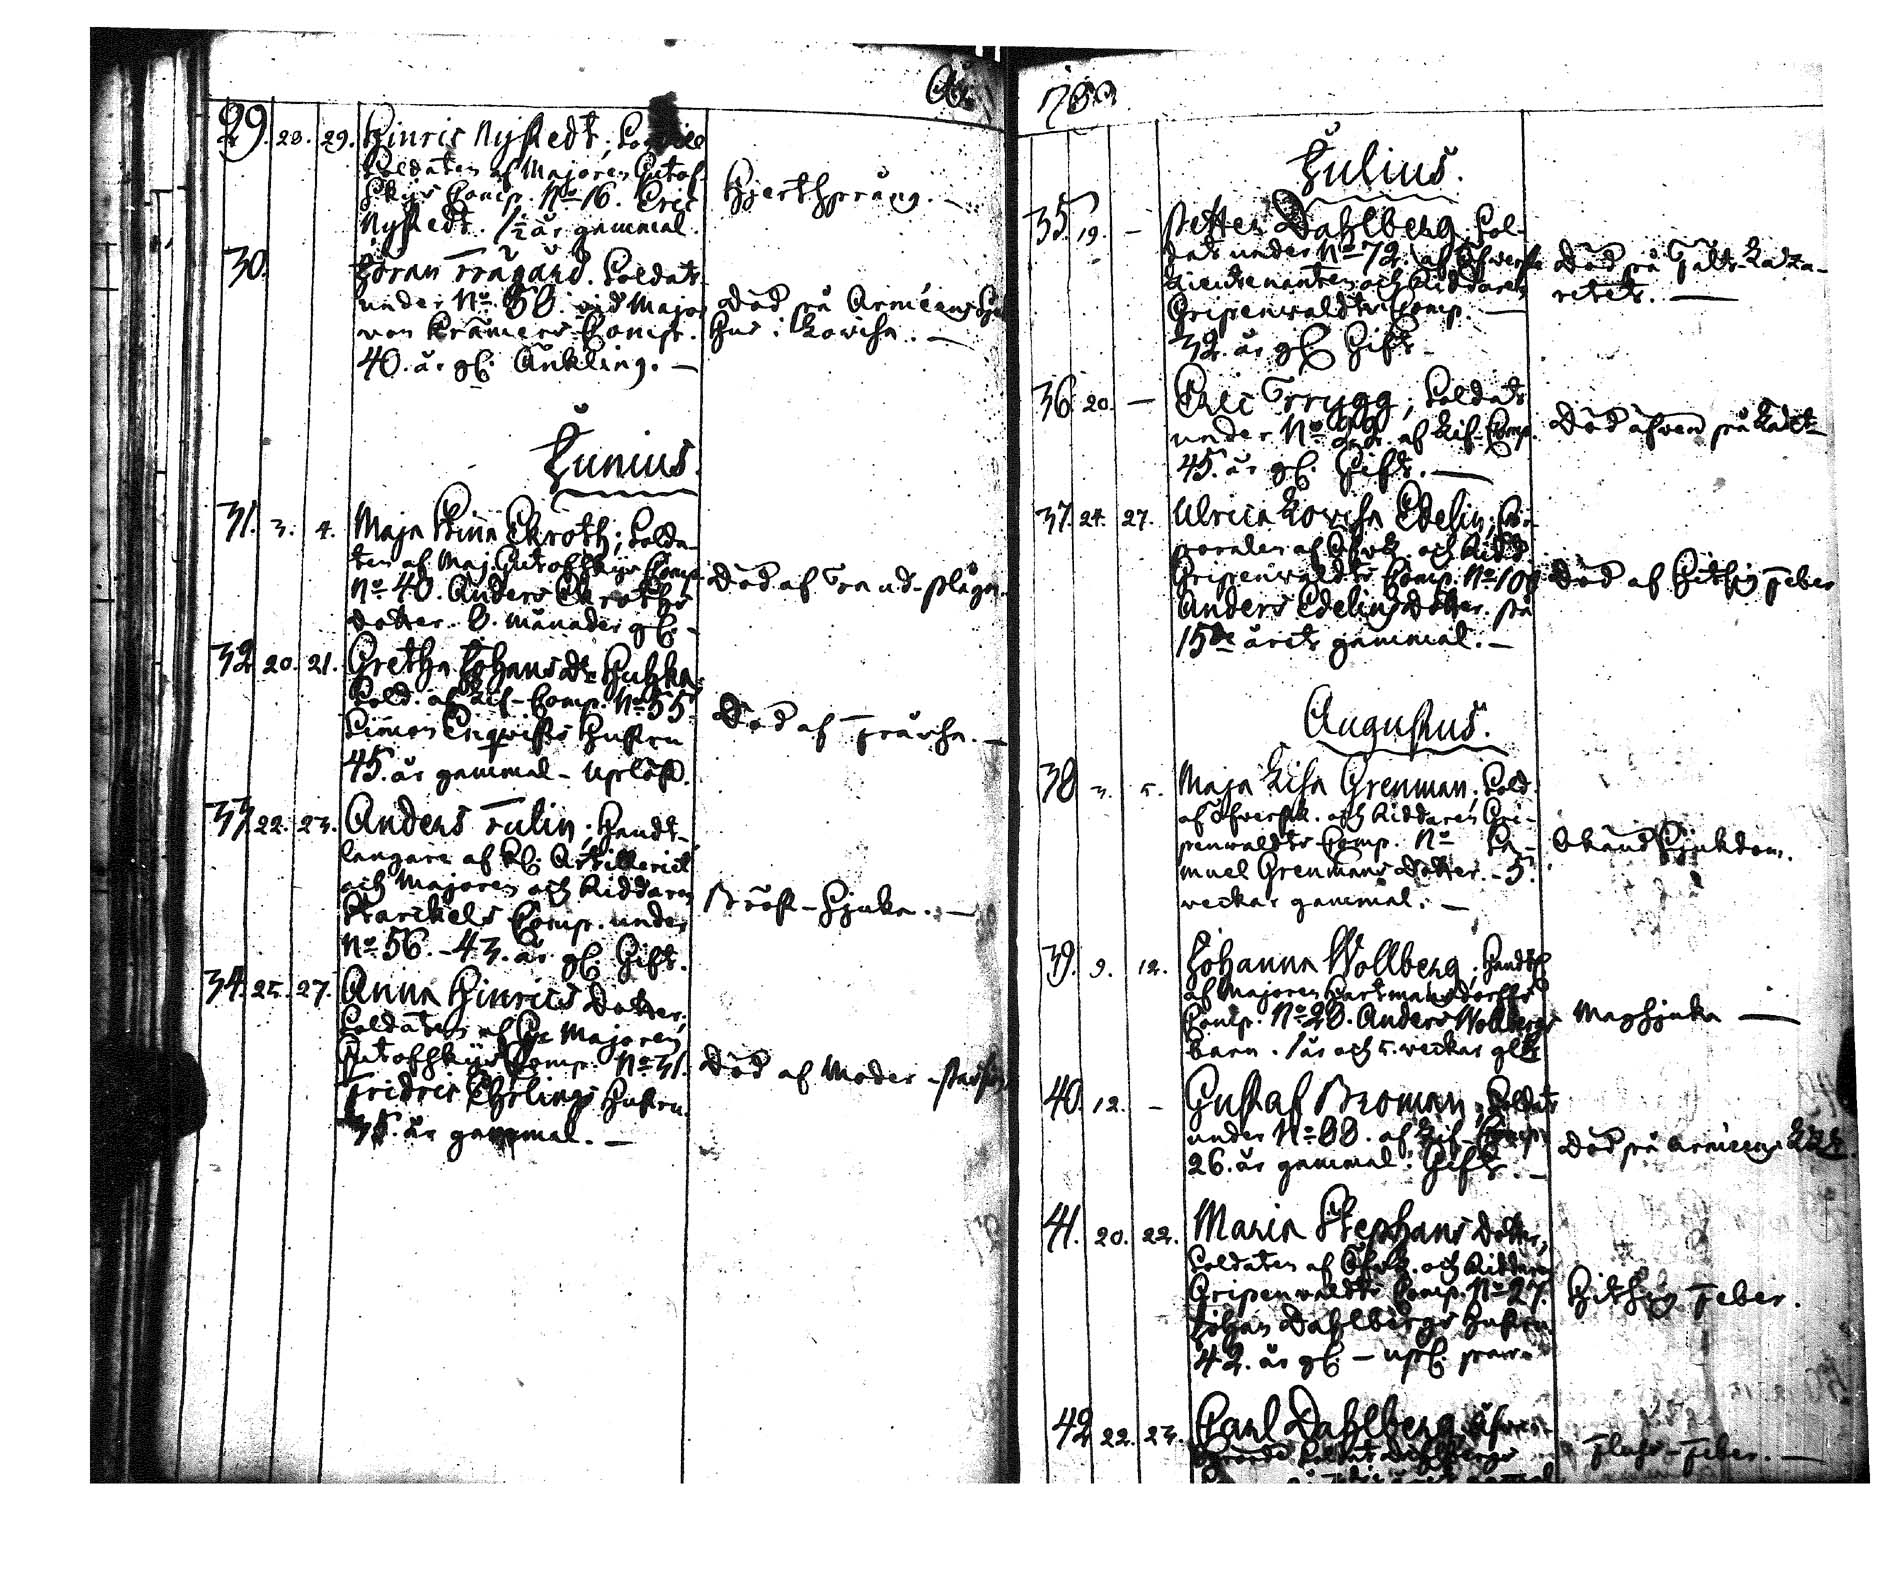 29. 28. 29. Hinric Nystedt;
Soldaten af Majoren Gutof-
skys Comp. No 16. Eric
Nystedt. 1½ år gammal.
Hjertsprång. —
30. Jöran Trägård. Soldat
under No. 58. vid Major
von Kræmers Comp.
40. år gl. Änkling. —
Död på Armeens Sju
hus i Lovisa. —
Junius.
31. 3. 4. Maja Stina Ekroth; Solda-
ten af Maj. Gutofskys Comp.
No 40. Anders Ekroths
Dotter. 8. månader gl. -
Död af Tand-plågor.
32 20. 21. Gretha Johansdr
Sold. af Lif-Comp. No 55.
Simon Enqvists Hustru
45. år gammal - upläst.
Död af Frårsa. —
33 22. 23. Anders Tulin; Handt-
langare af Kl. Artilleriet
och Majoren och Riddaren
Starckels Comp. under
No 56. - 43. år gl. Gift.
Bröst-Sjuka. —
34. 25. 27. Anna Hinrics Dotter;
Soldaten af Hr Majoren
Gutofskys Comp. No 31.
Fridric Ehrlings Hustru.
35. år gammal. —
Död af Moder-passion
78
Julius.
35. 19. — Petter Dahlberg, Sol-
dat under No 72. af Öfverste
Lieutenanten och Riddaren
Gripenwaldts Comp. —
32. år gl. Gift —
Död på Fält-Laza-
rettet. —
36 20. — Eric Trygg; Soldat
under No 22. af Lif-Comp.
45. år gl. Gift. —
Död äfven på Lazt
37. 24. 27. Ulrica Lovisa Edelin; Cor-
poralen af Öfvlt. och Ridd.
Gripenwaldts Comp. No 108
Anders Edelins Dotter. på
15de året gammal. —
Död af Hitsig Feber
Augustus.
38 3. 5. Maja Lisa Grenman; Sold.
af Öfverstl. och Riddaren Gri-
penwaldts Comp. No Sa-
muel Grenmans Dotter. - 5.
veckor gammal. —
Okänd Sjukdom.
39. 9. 12. Johanna Wollberg; Handtl.
af Majoren Hartmansdorffs
Comp. No 28. Anders Wollbergs
barn. 1 år och 5. veckor gl.
Magsjuka —
40. 12. - Gustaf Broman; Soldat
under No 88. af Lif-Comp.
26. år gammal. Gift. —
Död på Armeens Lazt.
41. 20. 22. Maria Stephans Dotter,
Soldaten af Öfvlt. och Riddaren
Gripenwaldts Comp. No 27.
Johan Dahlbergs Hustru
42. år gl. —
Hitsig Feber.
42 22. 23. Carl Dahlberg,
Soldat Dahlbergs
Fluss-Feber. —